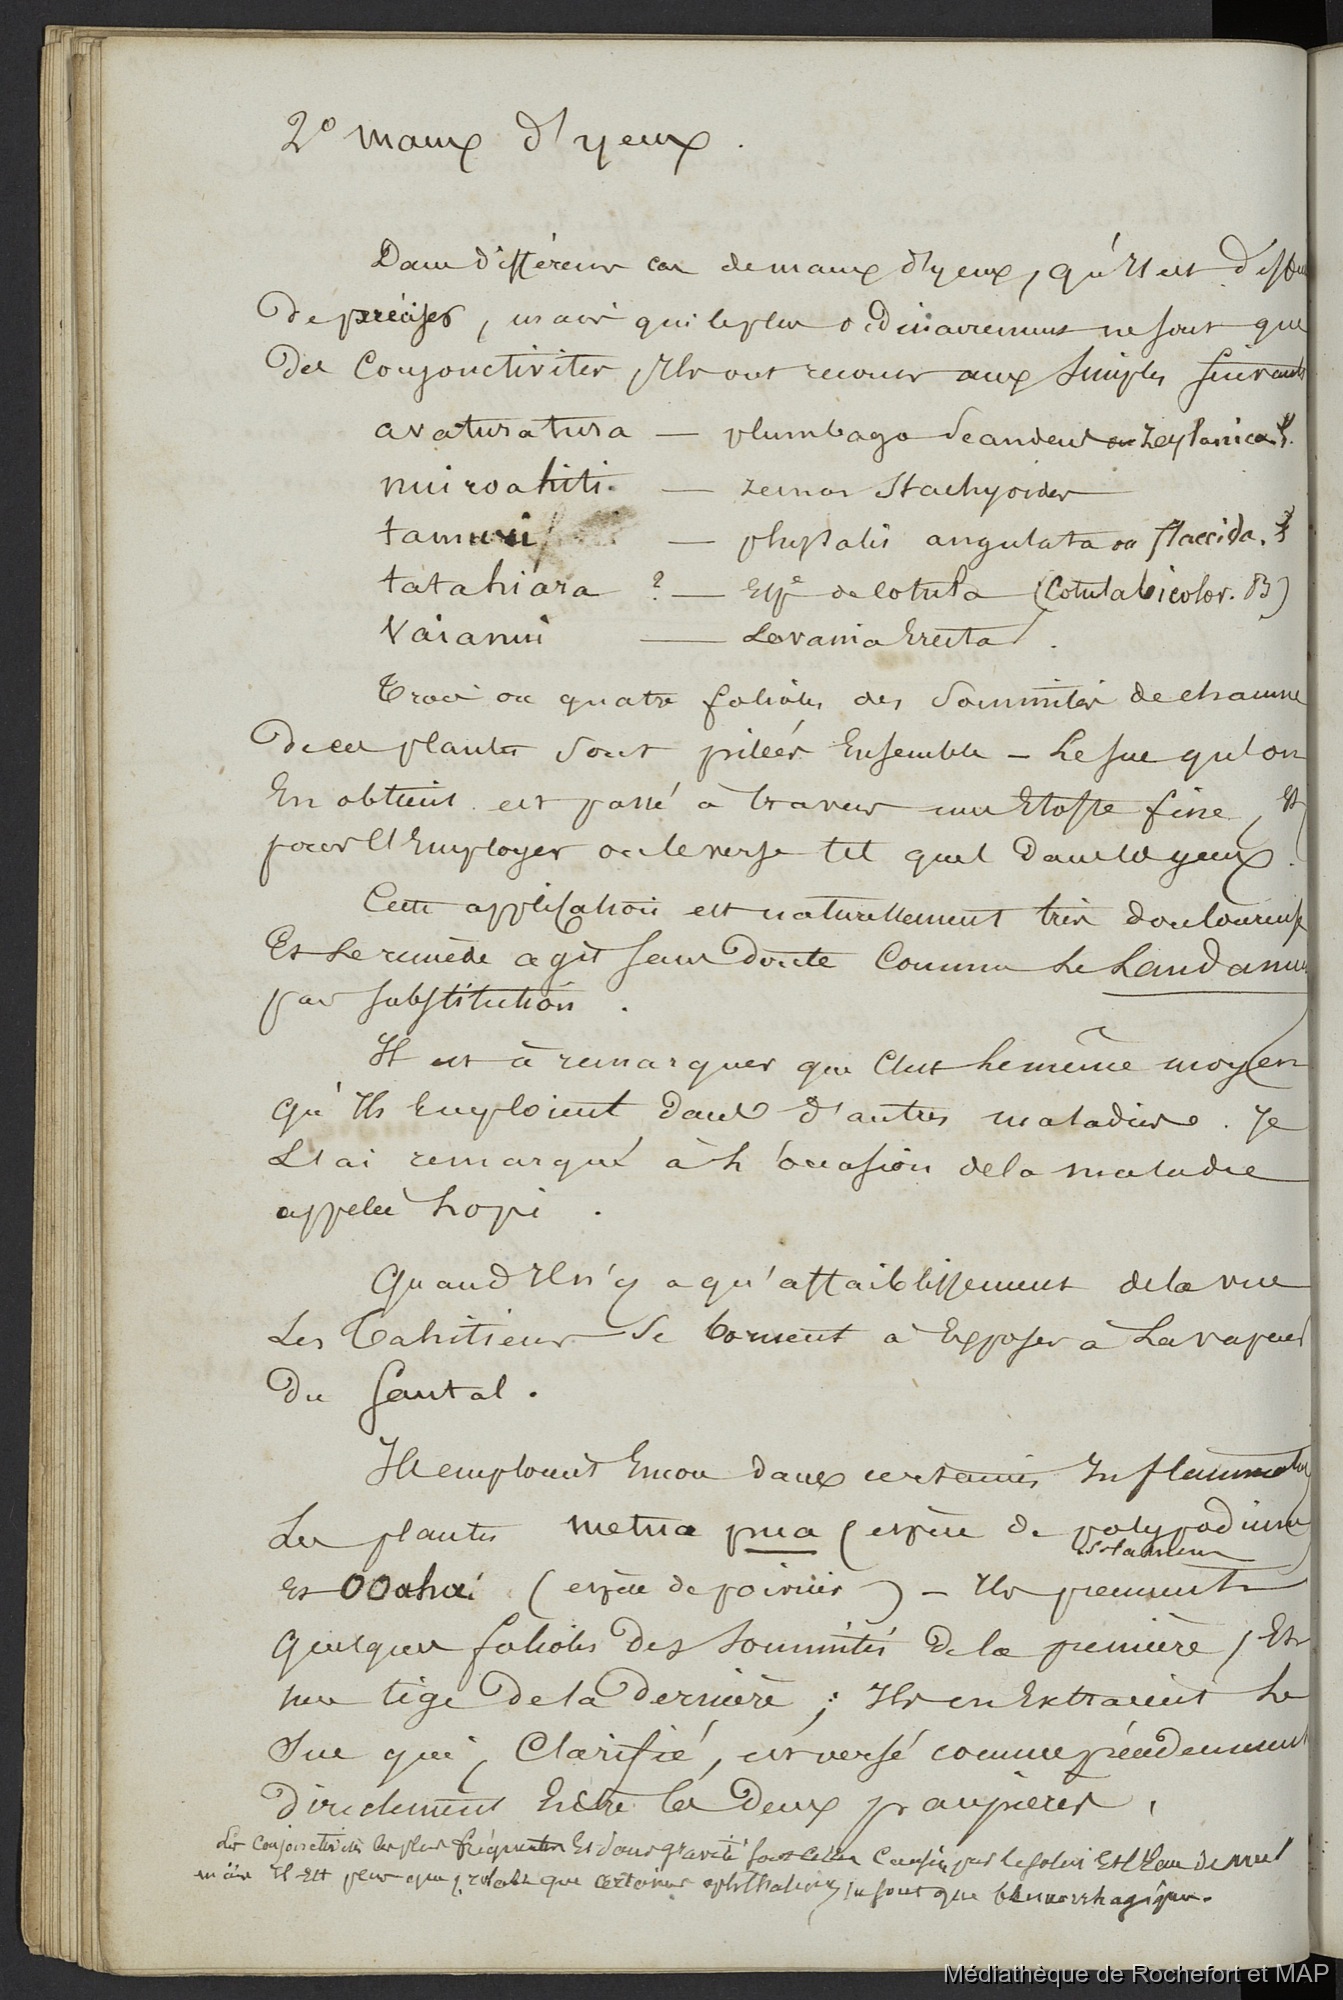 2° Maux d'yeux.
Dans différens cas de maux d'yeux, qu'Il est
De préciser, mais qui le plus ordinairement ne sont que
Des Conjonctivites, Ils ont recours aux simples suivants
avaturatura — plumbago Scandens ou Zeylanica. L.
miroahiti. — Stachyoides
tamuni — physalis angulata ou flaccida.
tatahiara ? — Espe de Cotula (Cotula bicolor. B)
Vaianu — Lavania Erecta.
Trois ou quatre folioles des Sommités de chacune
De ces plantes sont pilées Ensemble — Le suc qu'on
En obtient est passé à travers une Etoffe fine, Et
pour l'Employer on le verse tel quel Dans les yeux.
Cette application est naturellement très douloureuse
Et Le remède agit sans Doute Comme Le Laudanum
par substitution.
Il est à remarquer que C'est Le même moyen
qu'Ils Emploient Dans D'autres maladies. Je
L'ai remarqué à L'occasion de la maladie
appelée hopi.
Quand Il n'y a qu'affaiblissement de la vue
Les Tahitiens Se bornent à Exposer à La vapeur
Du Santal.
Ils emploient Encore dans certaines Inflammations
Les plantes metua pua (espèce de polypodium)
Solanum
Et Oo aha (espèce de poivrier) — Ils prennent
Quelques folioles Des Sommités De la première, Et
une tige De la Dernière; Ils en Extraient Le
Suc qui, Clarifié, est versé comme précédemment
Directement Entre les Deux paupières.
Les conjonctivites les plus fréquentes Et sans gravité sont celles Causées par le soleil Et l'Eau de mer
mais Il est plus que probable que certaines ophthalmies ne sont que blennorrhagiques.
Médiathèque de Rochefort et MAP